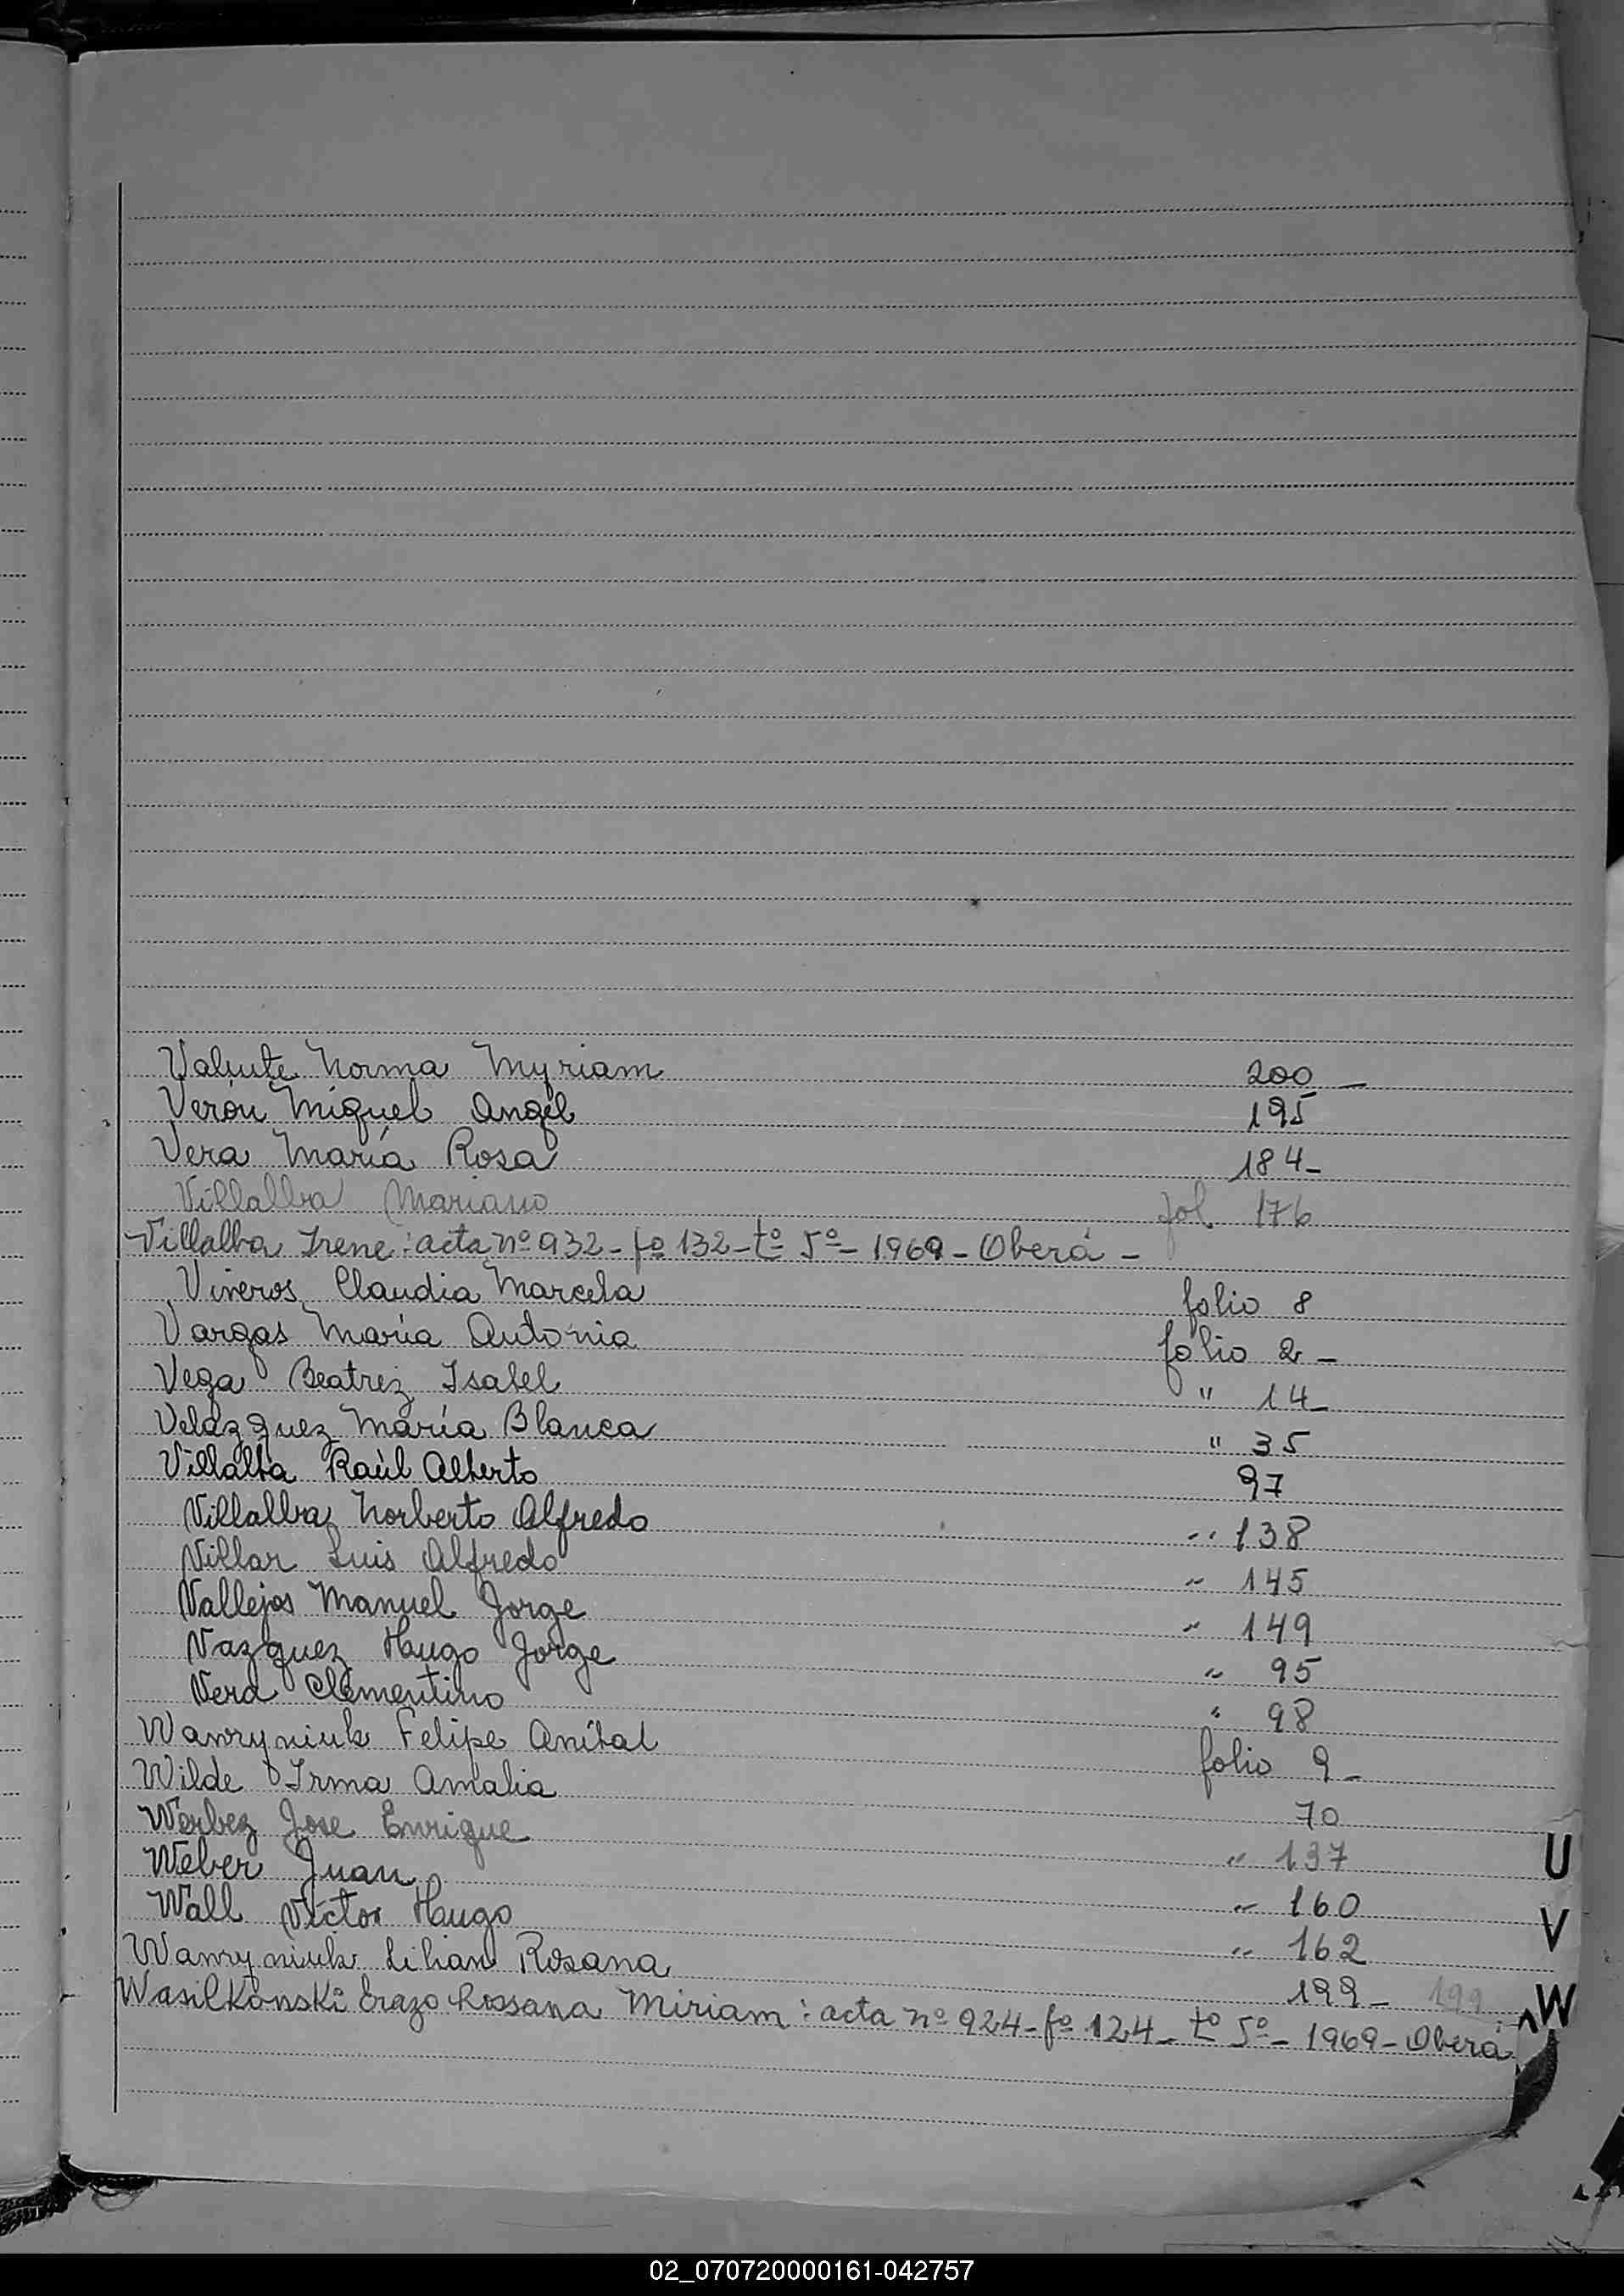 Valiente Norma Myriam 200 -
Verón Miguel Angel 195
Vera María Rosa 184 -
Villalba Mariano fol 176
Villalba Irene: acta nº 932 - fº 132 - tº 5º - 1969 - Oberá -
Viveros Claudia Marcela folio 8
Vargas María Antonia folio 2 -
Vega Beatriz Isabel " 14 -
Velázquez María Blanca " 35
Villalba Raúl Alberto 97
Villalba Norberto Alfredo " 138
Villar Luis Alfredo " 145
Vallejos Manuel Jorge " 149
Vazquez Hugo Jorge " 95
Vera Clementino " 98
Wawryniuk Felipe Aníbal folio 9 -
Wilde Irma Amalia 70
Werbez Jose Enrique " 137
Weber Juan " 160
Wall Victor Hugo " 162
Wawryniuk Lilian Rosana 199 - 199
Wasilkonski Erazo Rossana Miriam: acta nº 924 - fº 124 - tº 5º - 1969 - Oberá
U
V
W
02_070720000161-042757